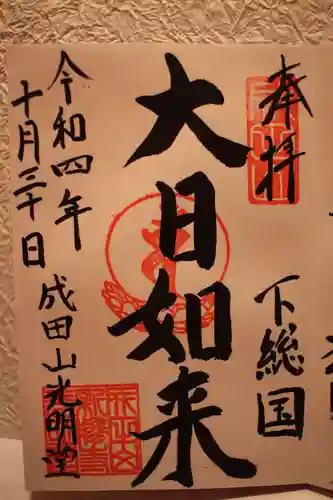 奉拝
下総国
大日如来
令和四年
十月三十日
成田山光明堂